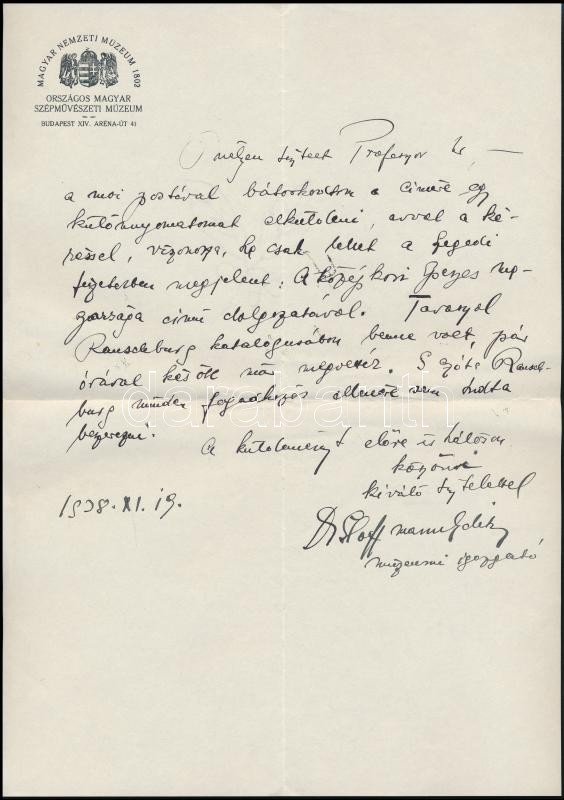 MAGYAR NEMZETI MÚZEUM 1802
ORSZÁGOS MAGYAR
SZÉPMŰVÉSZETI MÚZEUM
BUDAPEST XIV. ARÉNA-ÚT 41
Mélyen tisztelt Professor Úr, —
a mai postával bátorkodtam a címére egy
különnyomatomat elküldeni, avval a ké-
réssel, viszonozza, ha csak lehet a szegedi
füzetekben megjelent: A középkori
című dolgozatával. Tavasszal
Ranschburg katalógusában benne volt, pár
órával később már megvették. S azóta Ransch-
burg minden fogadkozás ellenére sem tudta
beszerezni.
A küldeményt előre is hálásan
köszöni
kiváló tisztelettel
1938. XI. 19.
Dr Hoffmann Edith
múzeumi igazgató
darabanth